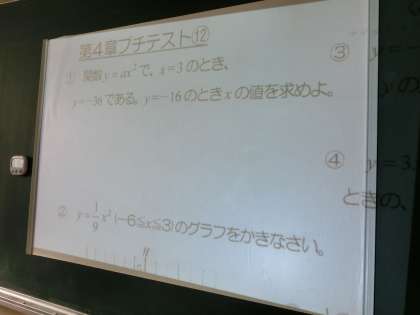 第4章プチテスト⑫
① 関数y=ax²で、x=3のとき、
y=-36である。y=-16のときxの値を求めよ。
② y=1/9x² (-6≦x≦3)のグラフをかきなさい。
y
③ y=
yの
④ y=3.
ときの、